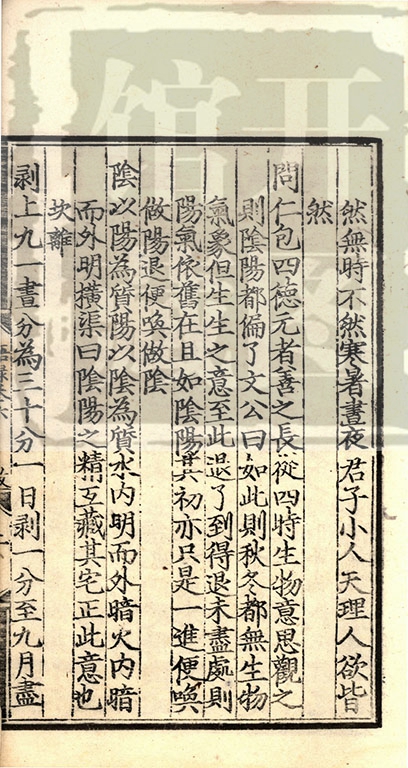 然無時不然寒暑晝夜君子小人天理人欲皆
然
問仁包四德元者善之長從四時生物意思觀之
則陰陽都偏了文公曰如此則秋冬都無生物
氣象但生生之意至此退了到得退未盡處則
陽氣依舊在且如陰陽其初亦只是一進便喚
做陽退便喚做陰
陰以陽為質陽以陰為質水內明而外暗火內暗
而外明橫渠曰陰陽之精互藏其宅正此意也
坎離
剥上九一畫分為三十分一日剥一分至九月盡